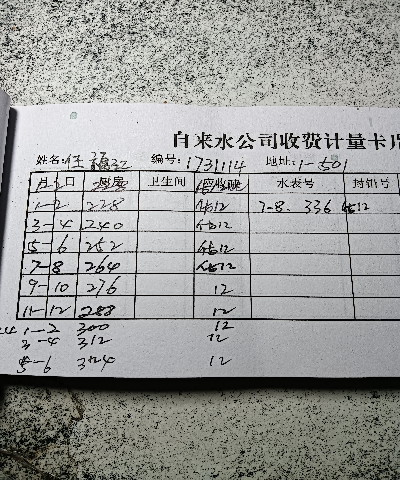 自来水公司收费计量卡片
姓名: 任福江 编号: 1731114 地址: 1-501
月 日 卫生间 水表号 封铅号
1-2 228 12 7-8. 336 12
3-4 240 12
5-6 252 12
7-8 264 12
9-10 276 12
11-12 288 12
1-2 300 12
3-4 312 12
5-6 324 12